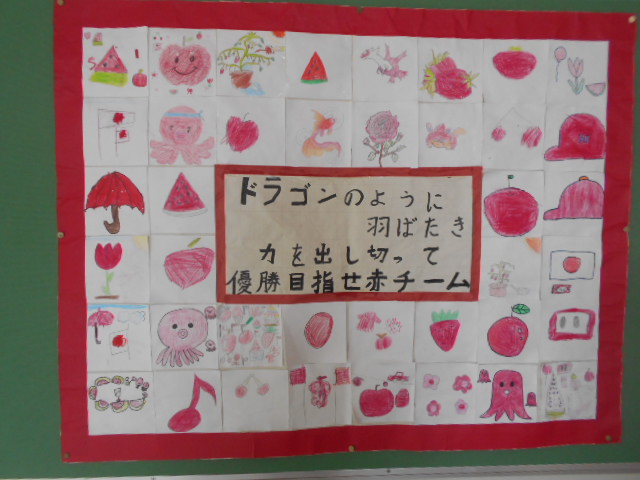 ドラゴンのように
羽ばたき
力を出し切って
優勝目指せ赤チーム